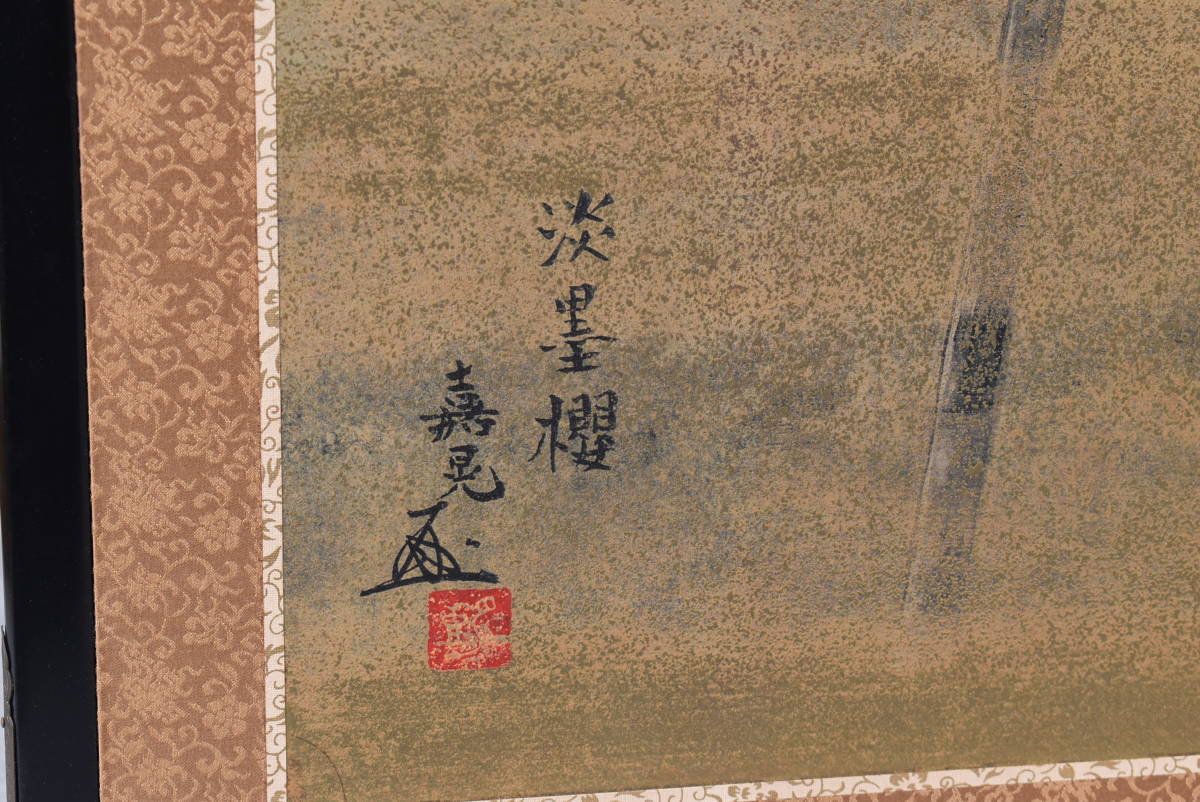 淡墨櫻
嘉晃